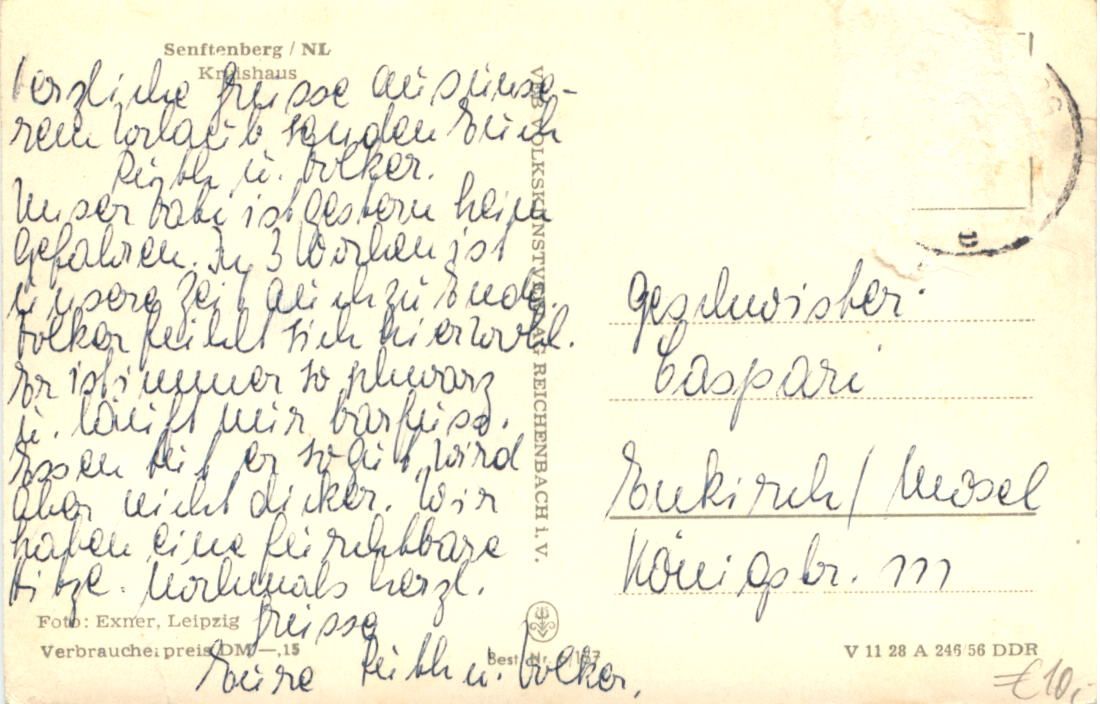 Senftenberg / NL
Kreishaus
Herzliche Grüsse aus unse-
rem Urlaub senden Euch
Ruth u. Volker.
Unser Vati ist gestern heim
gefahren. In 3 Wochen ist
unsere Zeit auch zu Ende.
Volker fühlt sich hier wohl.
Er ist immer so schwarz
u. läuft nur barfuss.
Essen tut er so gut, wird
aber nicht dicker. Wir
haben eine furchtbare
Hitze. Nochmals herzl.
Grüsse
Eure Ruth u. Volker.
Foto: Exner, Leipzig
Verbraucherpreis DM —,15
VEB VOLKSKUNSTVERLAG REICHENBACH i. V.
Best. Nr.
Geschwister
Caspari
Enkirch / Mosel
Königstr. 111
V 11 28 A 246 56 DDR
€ 10,-